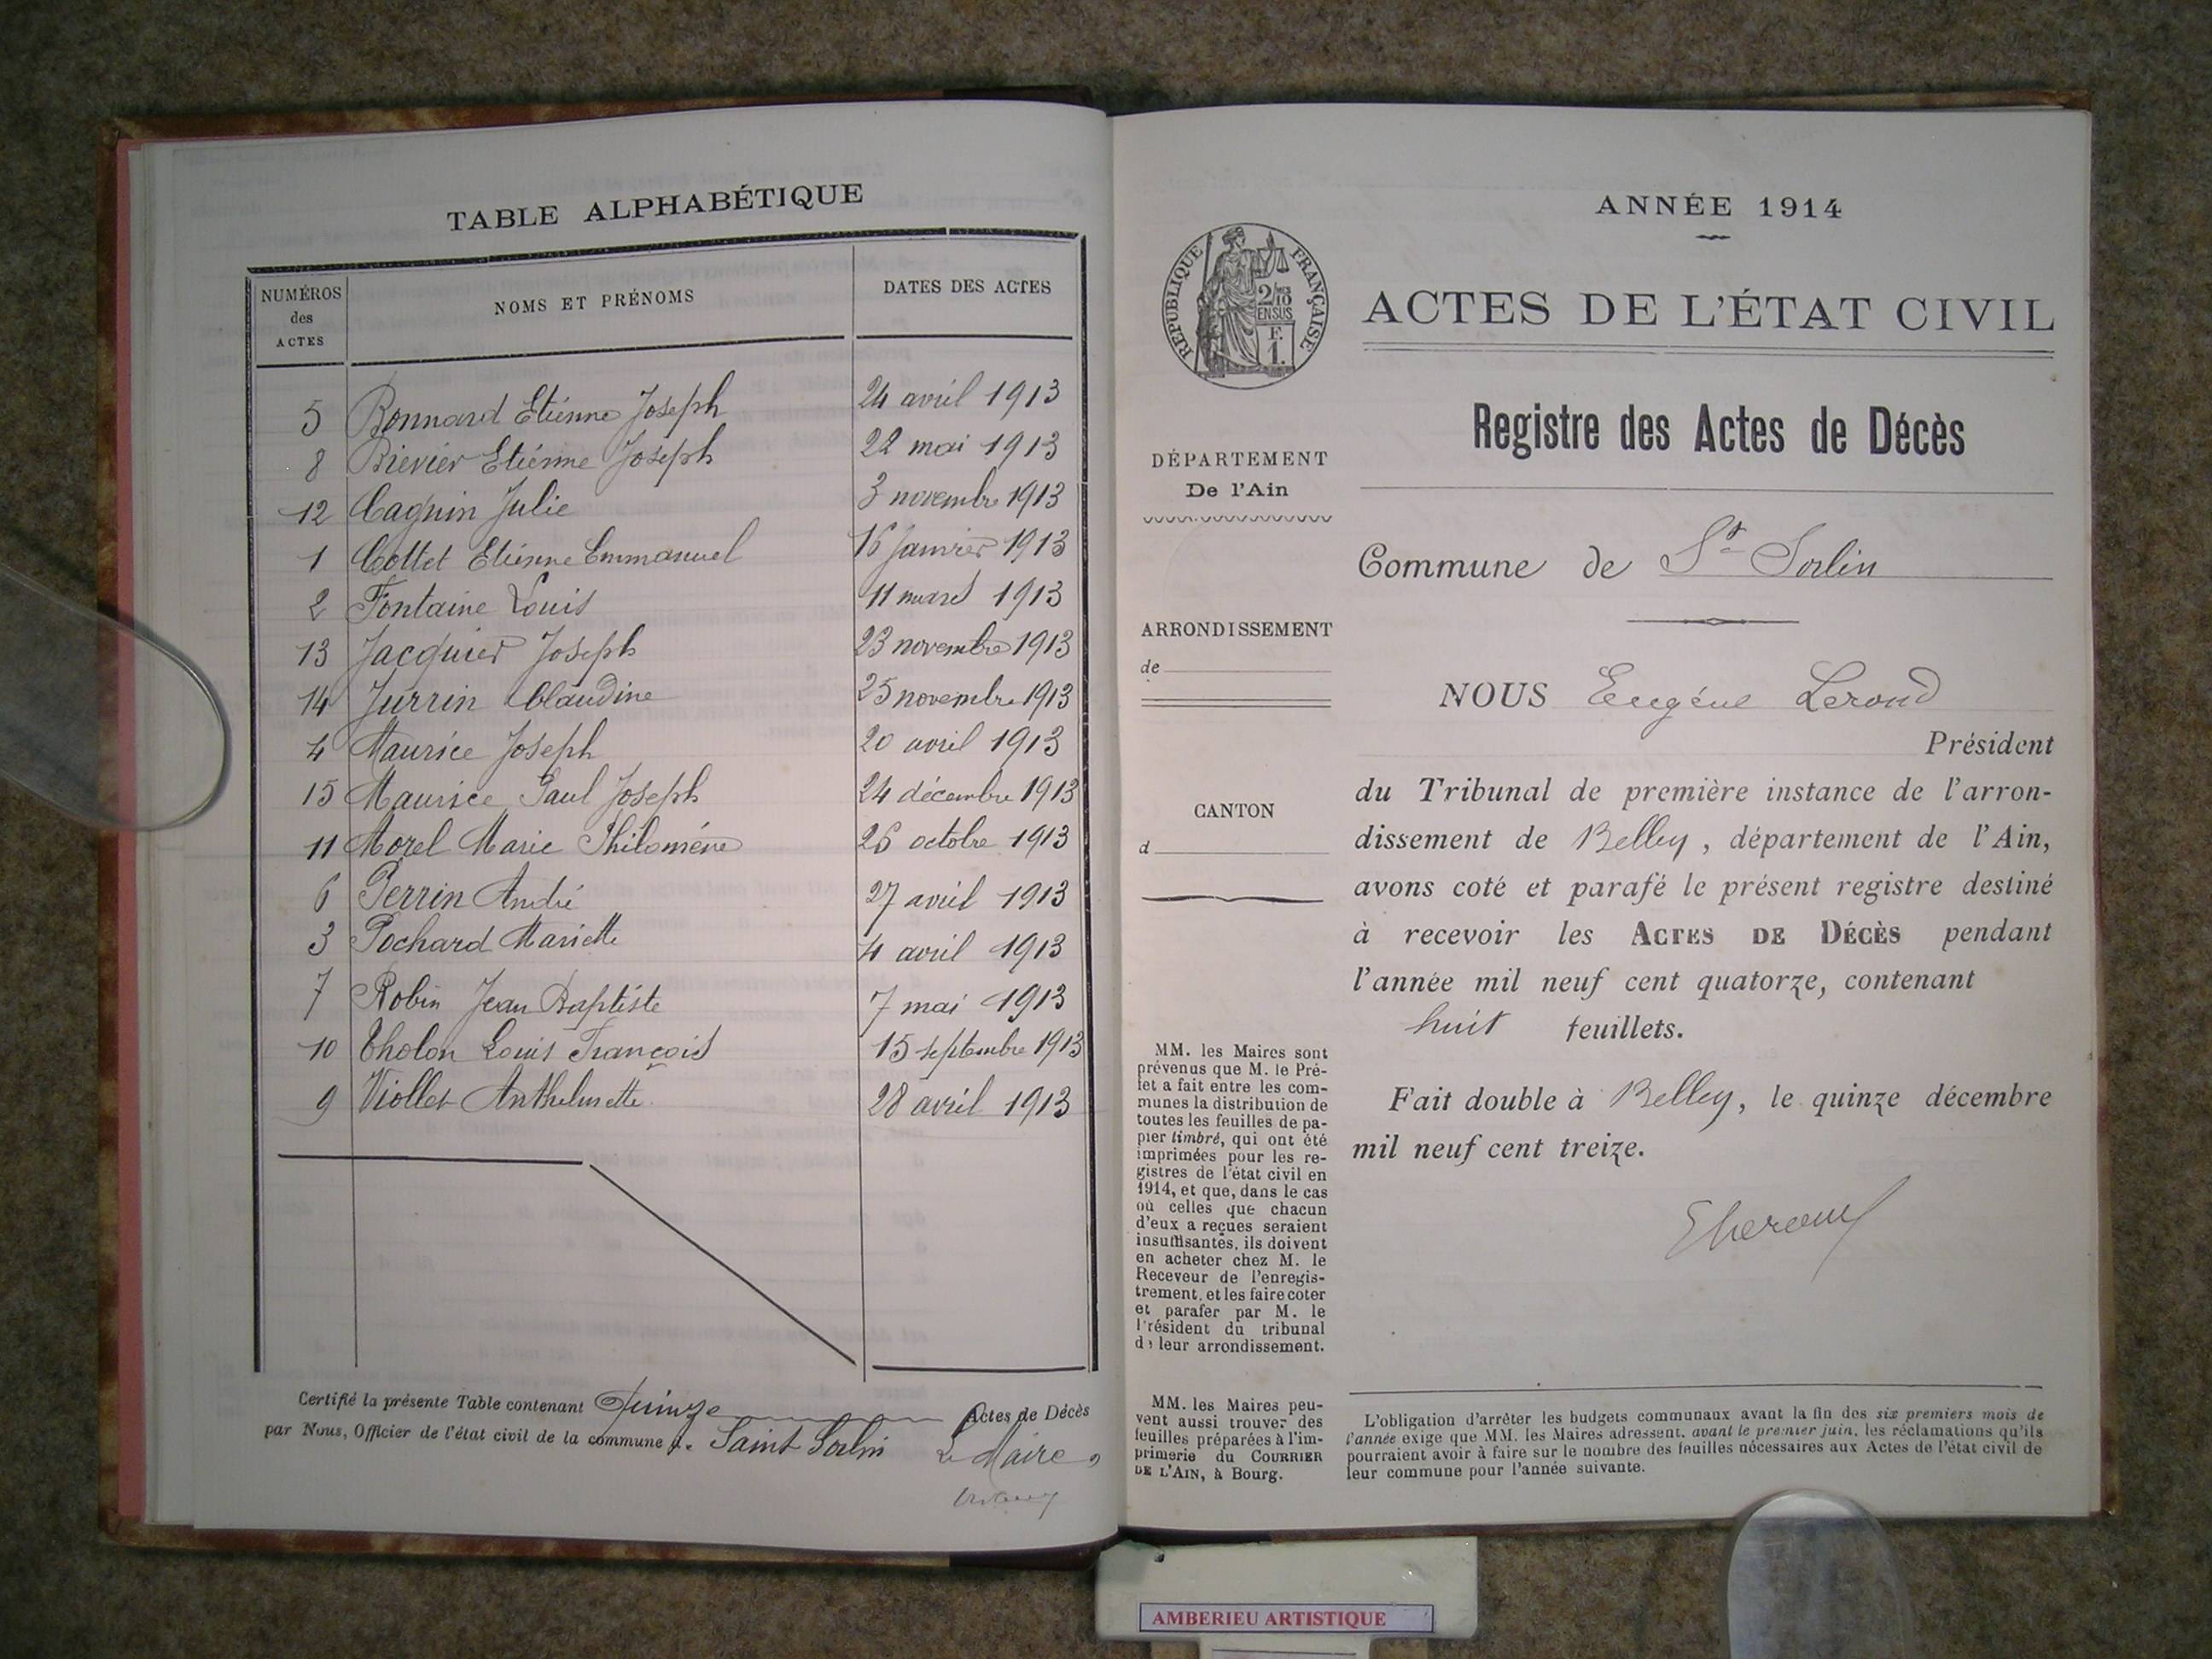 TABLE ALPHABÉTIQUE
NUMÉROS des ACTES
NOMS ET PRÉNOMS
DATES DES ACTES
5 Bonnard Etienne Joseph 24 avril 1913
8 Brevier Etienne Joseph 22 mai 1913
12 Cagnin Julie 3 novembre 1913
1 Cottet Etienne Emmanuel 16 janvier 1913
2 Fontaine Louis 11 mars 1913
13 Jacquier Joseph 23 novembre 1913
14 Jurrin Claudine 25 novembre 1913
4 Maurice Joseph 20 avril 1913
15 Maurice Paul Joseph 24 décembre 1913
11 Morel Marie Philomène 26 octobre 1913
6 Perrin André 27 avril 1913
3 Pochard Mariette 4 avril 1913
7 Robin Jean Baptiste 7 mai 1913
10 Tholon Louis François 15 septembre 1913
9 Viollet Anthelmette 28 avril 1913
Certifié la présente Table contenant Quinze Actes de Décès
par Nous, Officier de l'état civil de la commune de Saint Sorlin
Le Maire,
ANNÉE 1914
RÉPUBLIQUE FRANÇAISE
2/10 EN SUS
F. 1.
ACTES DE L'ÉTAT CIVIL
Registre des Actes de Décès
DÉPARTEMENT
De l'Ain
Commune de St Sorlin
ARRONDISSEMENT
de
CANTON
d
NOUS Eugéne Lerond
Président
du Tribunal de première instance de l'arron-
dissement de Belley, département de l'Ain,
avons coté et parafé le présent registre destiné
à recevoir les ACTES DE DÉCÈS pendant
l'année mil neuf cent quatorze, contenant
huit feuillets.
Fait double à Belley, le quinze décembre
mil neuf cent treize.
MM. les Maires sont
prévenus que M. le Pré-
fet a fait entre les com-
munes la distribution de
toutes les feuilles de pa-
pier timbré, qui ont été
imprimées pour les re-
gistres de l'état civil en
1914, et que, dans le cas
où celles que chacun
d'eux a reçues seraient
insuffisantes, ils doivent
en acheter chez M. le
Receveur de l'enregis-
trement, et les faire coter
et parafer par M. le
Président du tribunal
de leur arrondissement.
MM. les Maires peu-
vent aussi trouver des
feuilles préparées à l'im-
primerie du COURRIER
DE L'AIN, à Bourg.
L'obligation d'arrêter les budgets communaux avant la fin des six premiers mois de
l'année exige que MM. les Maires adressent, avant le premier juin, les réclamations qu'ils
pourraient avoir à faire sur le nombre des feuilles nécessaires aux Actes de l'état civil de
leur commune pour l'année suivante.
AMBERIEU ARTISTIQUE